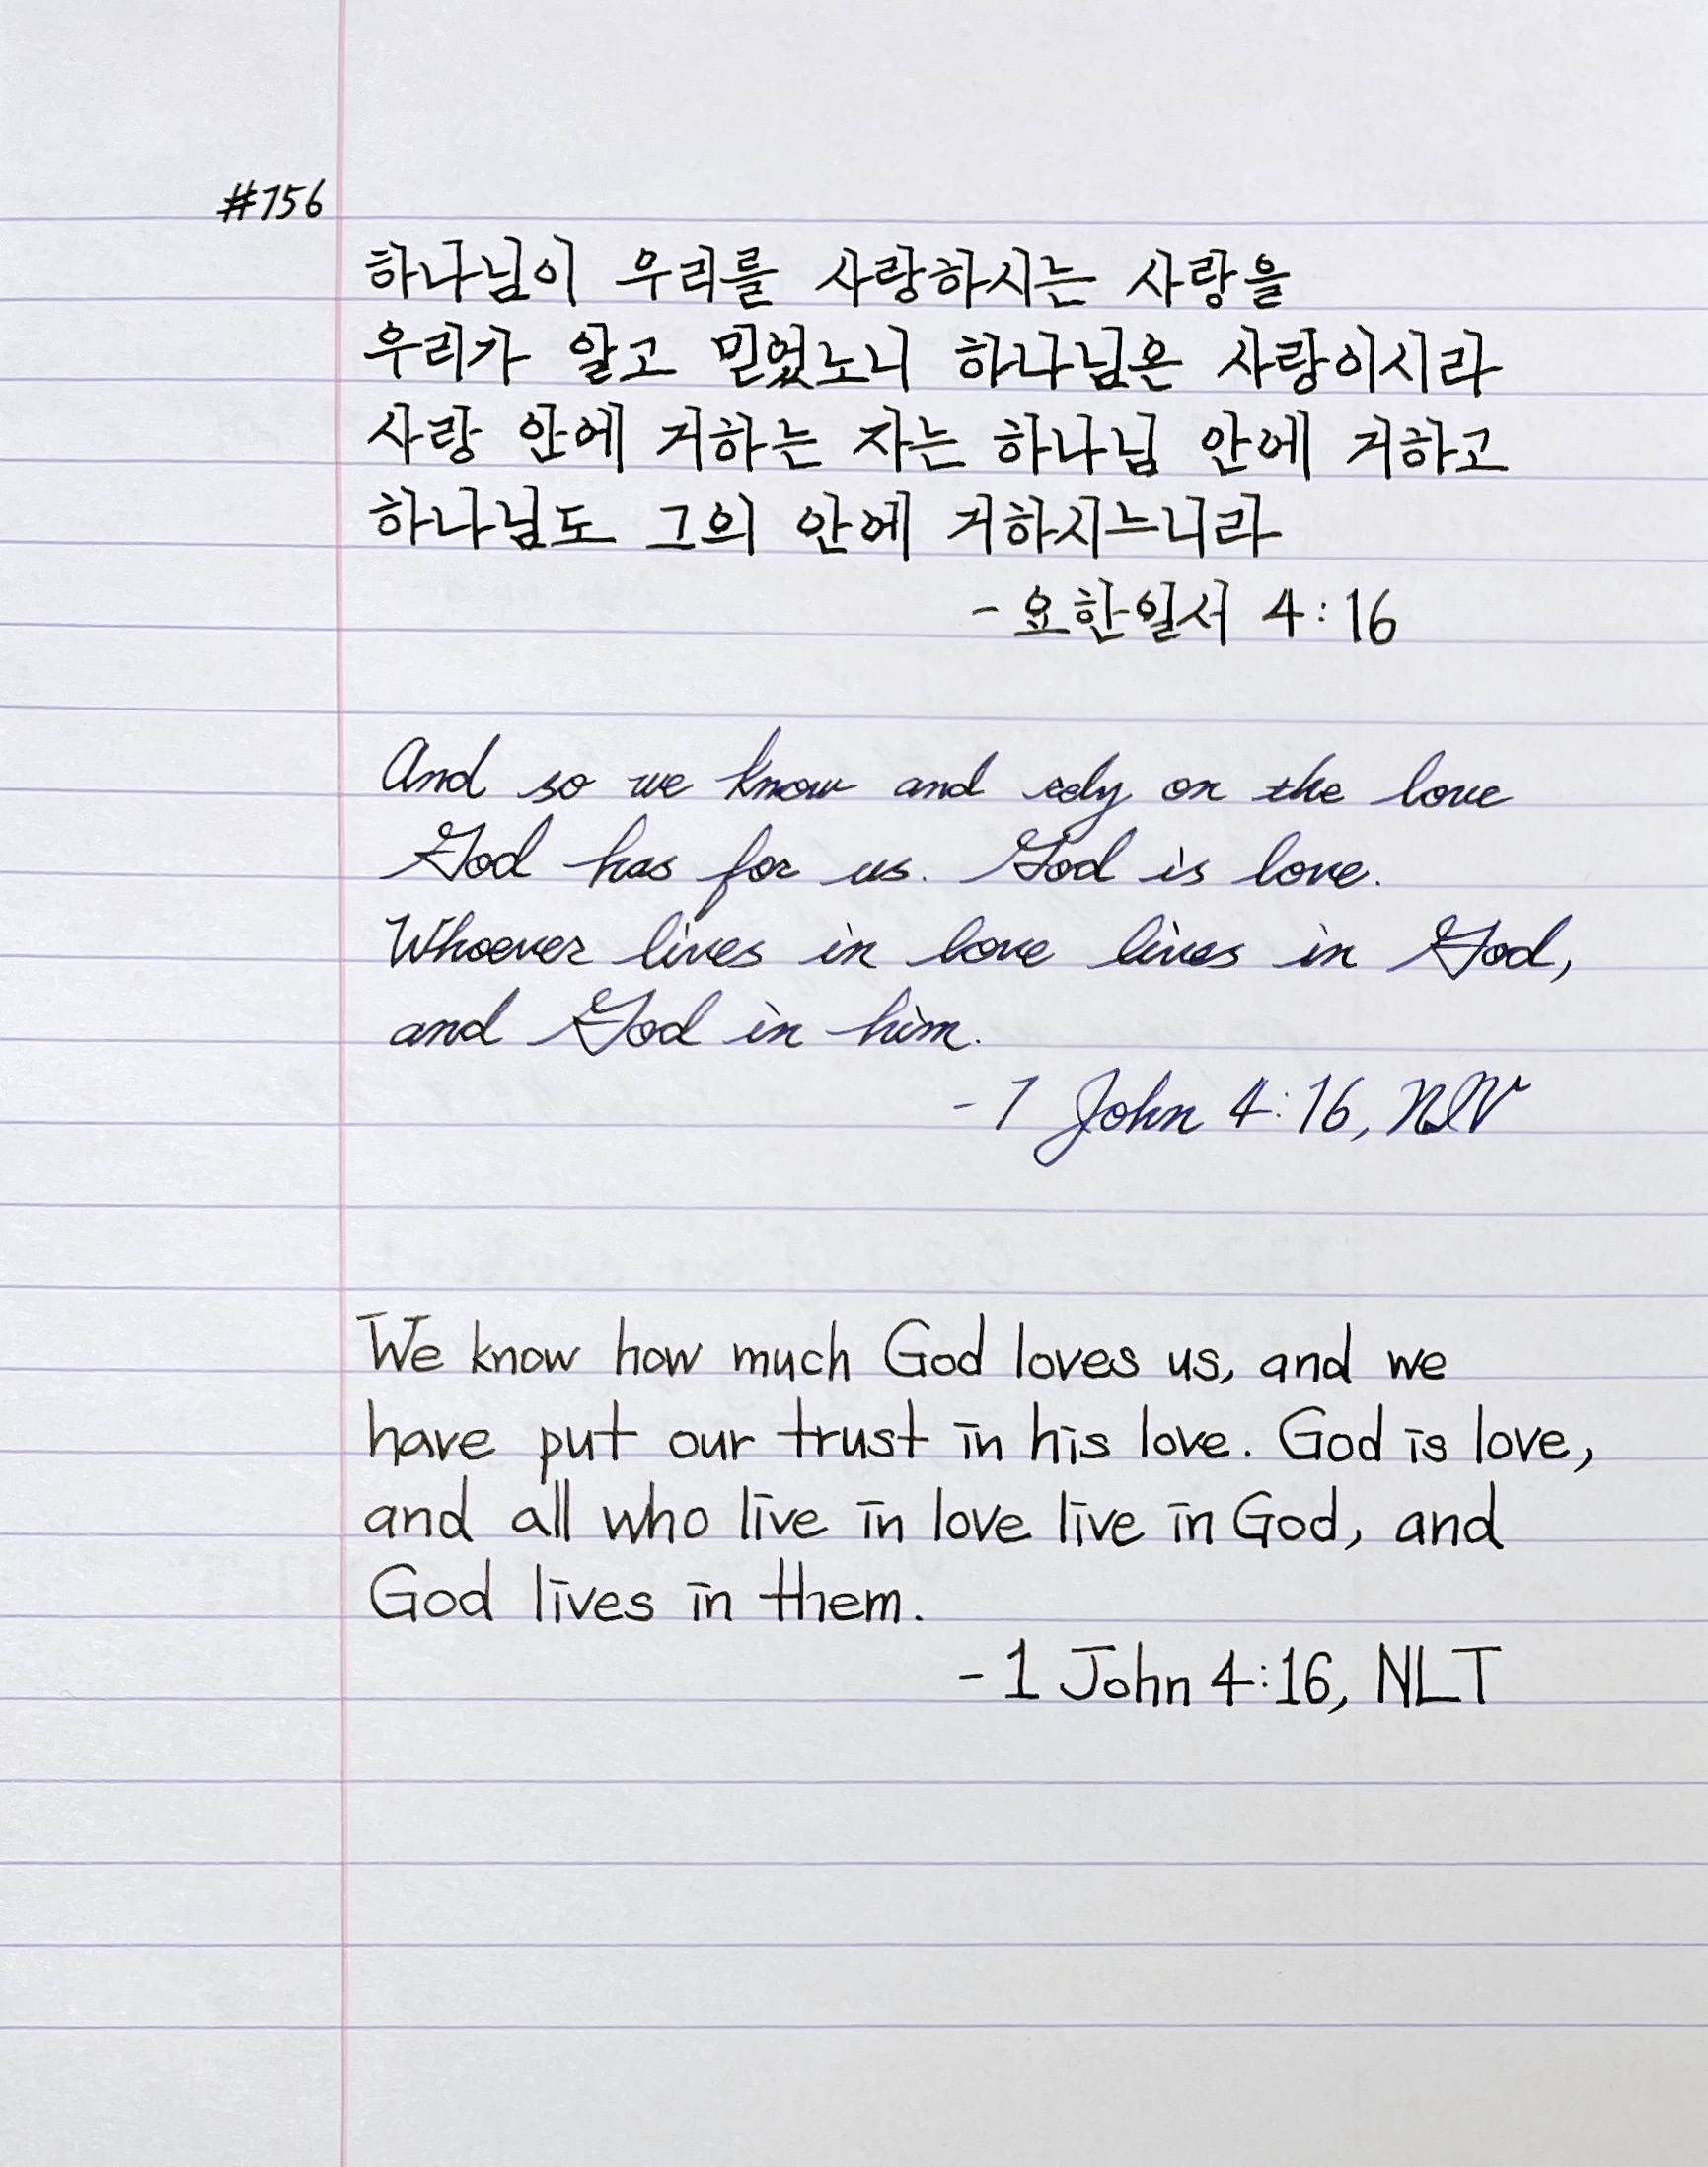 #156
하나님이 우리를 사랑하시는 사랑을
우리가 알고 믿었노니 하나님은 사랑이시라
사랑 안에 거하는 자는 하나님 안에 거하고
하나님도 그의 안에 거하시느니라
- 요한일서 4:16
And so we know and rely on the love
God has for us. God is love.
Whoever lives in love lives in God,
and God in him.
- 1 John 4:16, NIV
We know how much God loves us, and we
have put our trust in his love. God is love,
and all who live in love live in God, and
God lives in them.
- 1 John 4:16, NLT